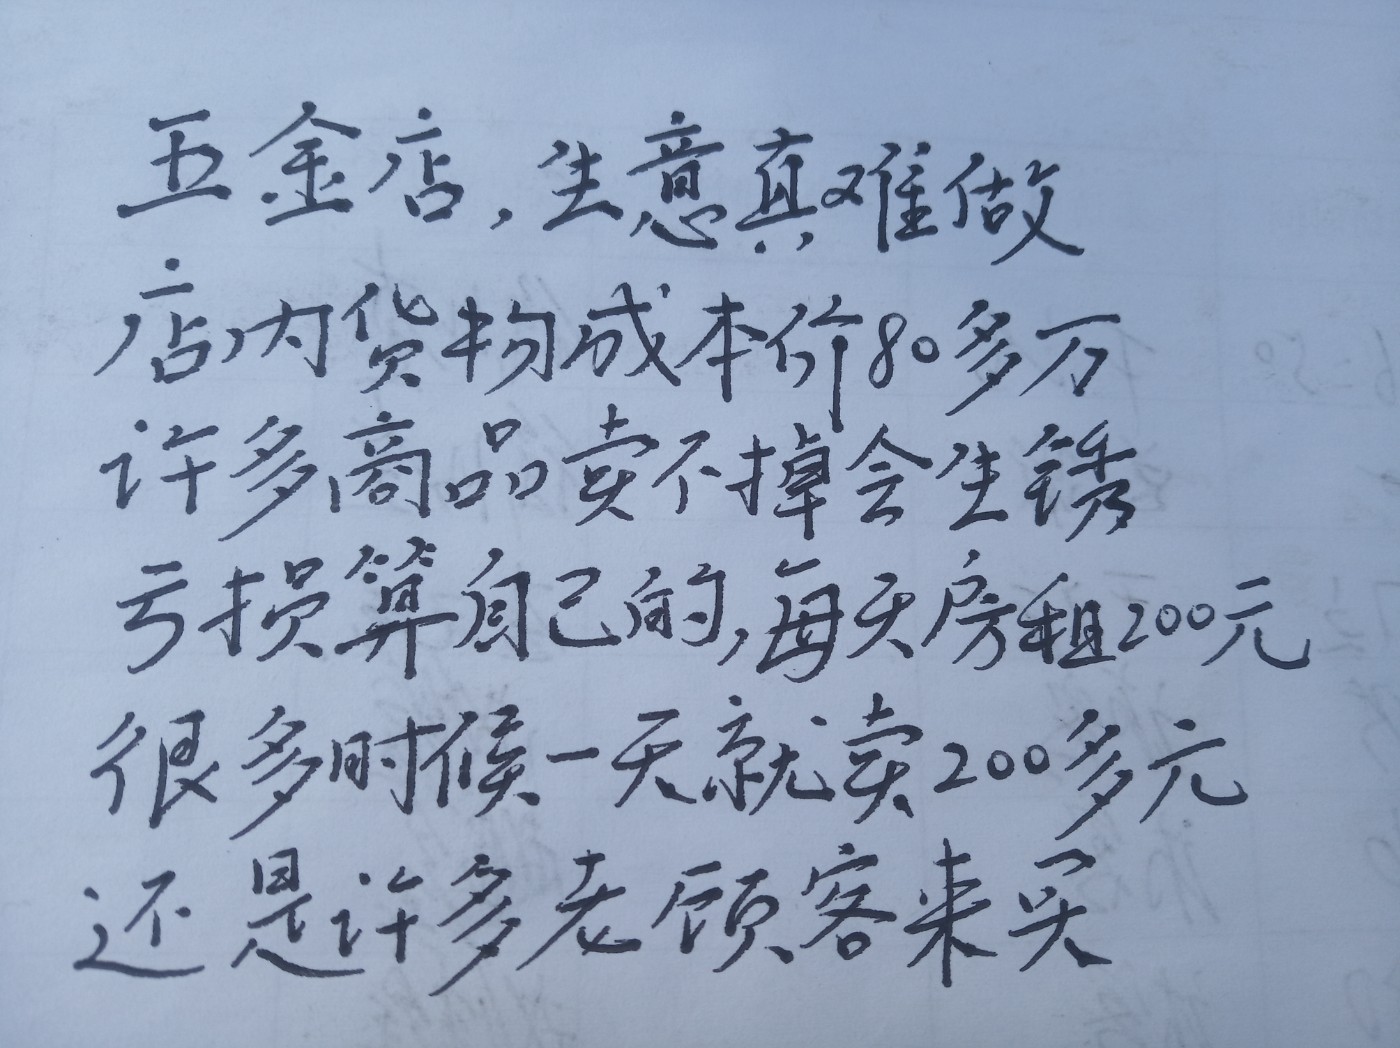 五金店,生意真难做
店内货物成本价80多万
许多商品卖不掉会生锈
亏损算自己的,每天房租200元
很多时候一天就卖200多元
还是许多老顾客来买